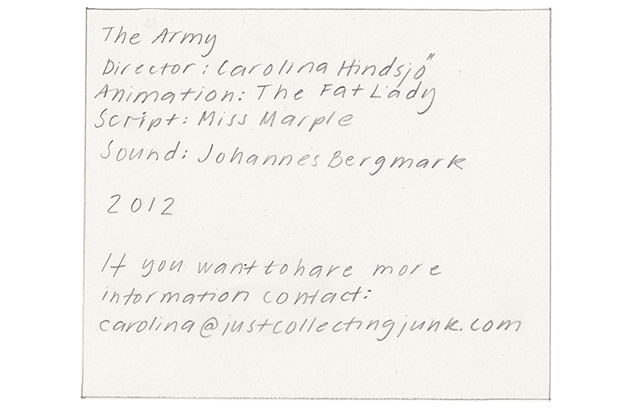 The Army
Director: Carolina Hindsjö
Animation: The Fat Lady
Script: Miss Marple
Sound: Johannes Bergmark
2012
If you want to have more
information contact:
carolina@justcollectingjunk.com